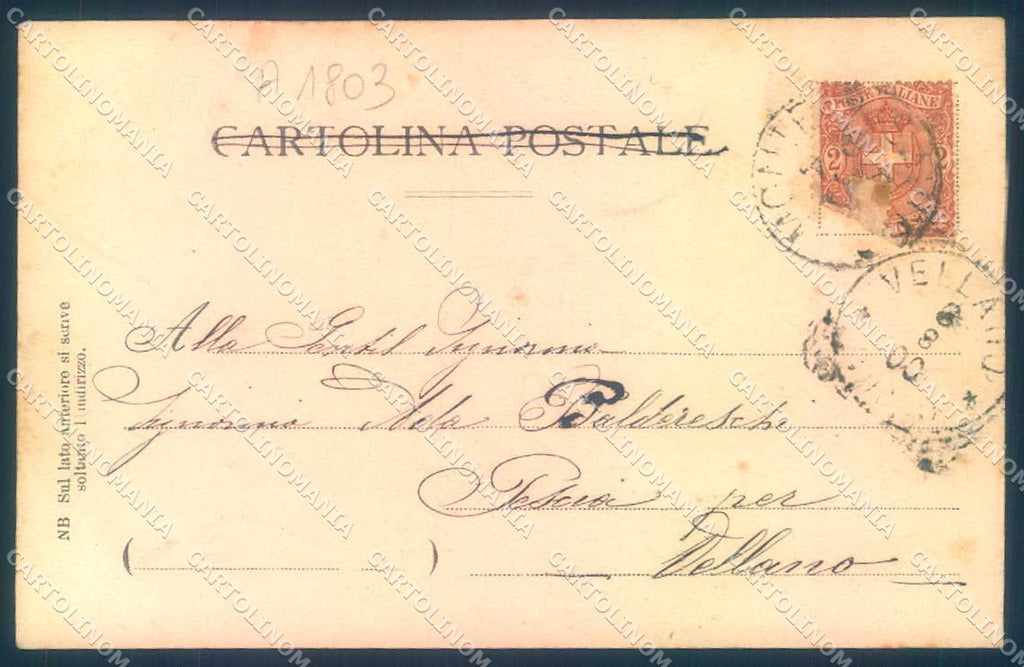 A 1803
CARTOLINA POSTALE
POSTE ITALIANE
2 2
VELLANO
8
00
Alla Gentil Signorina
Signorina Ada Baldereschi
Pescia per
Vellano
( )
NB Sul lato anteriore si scrive
soltanto l indirizzo.
CARTOLINOMANIA